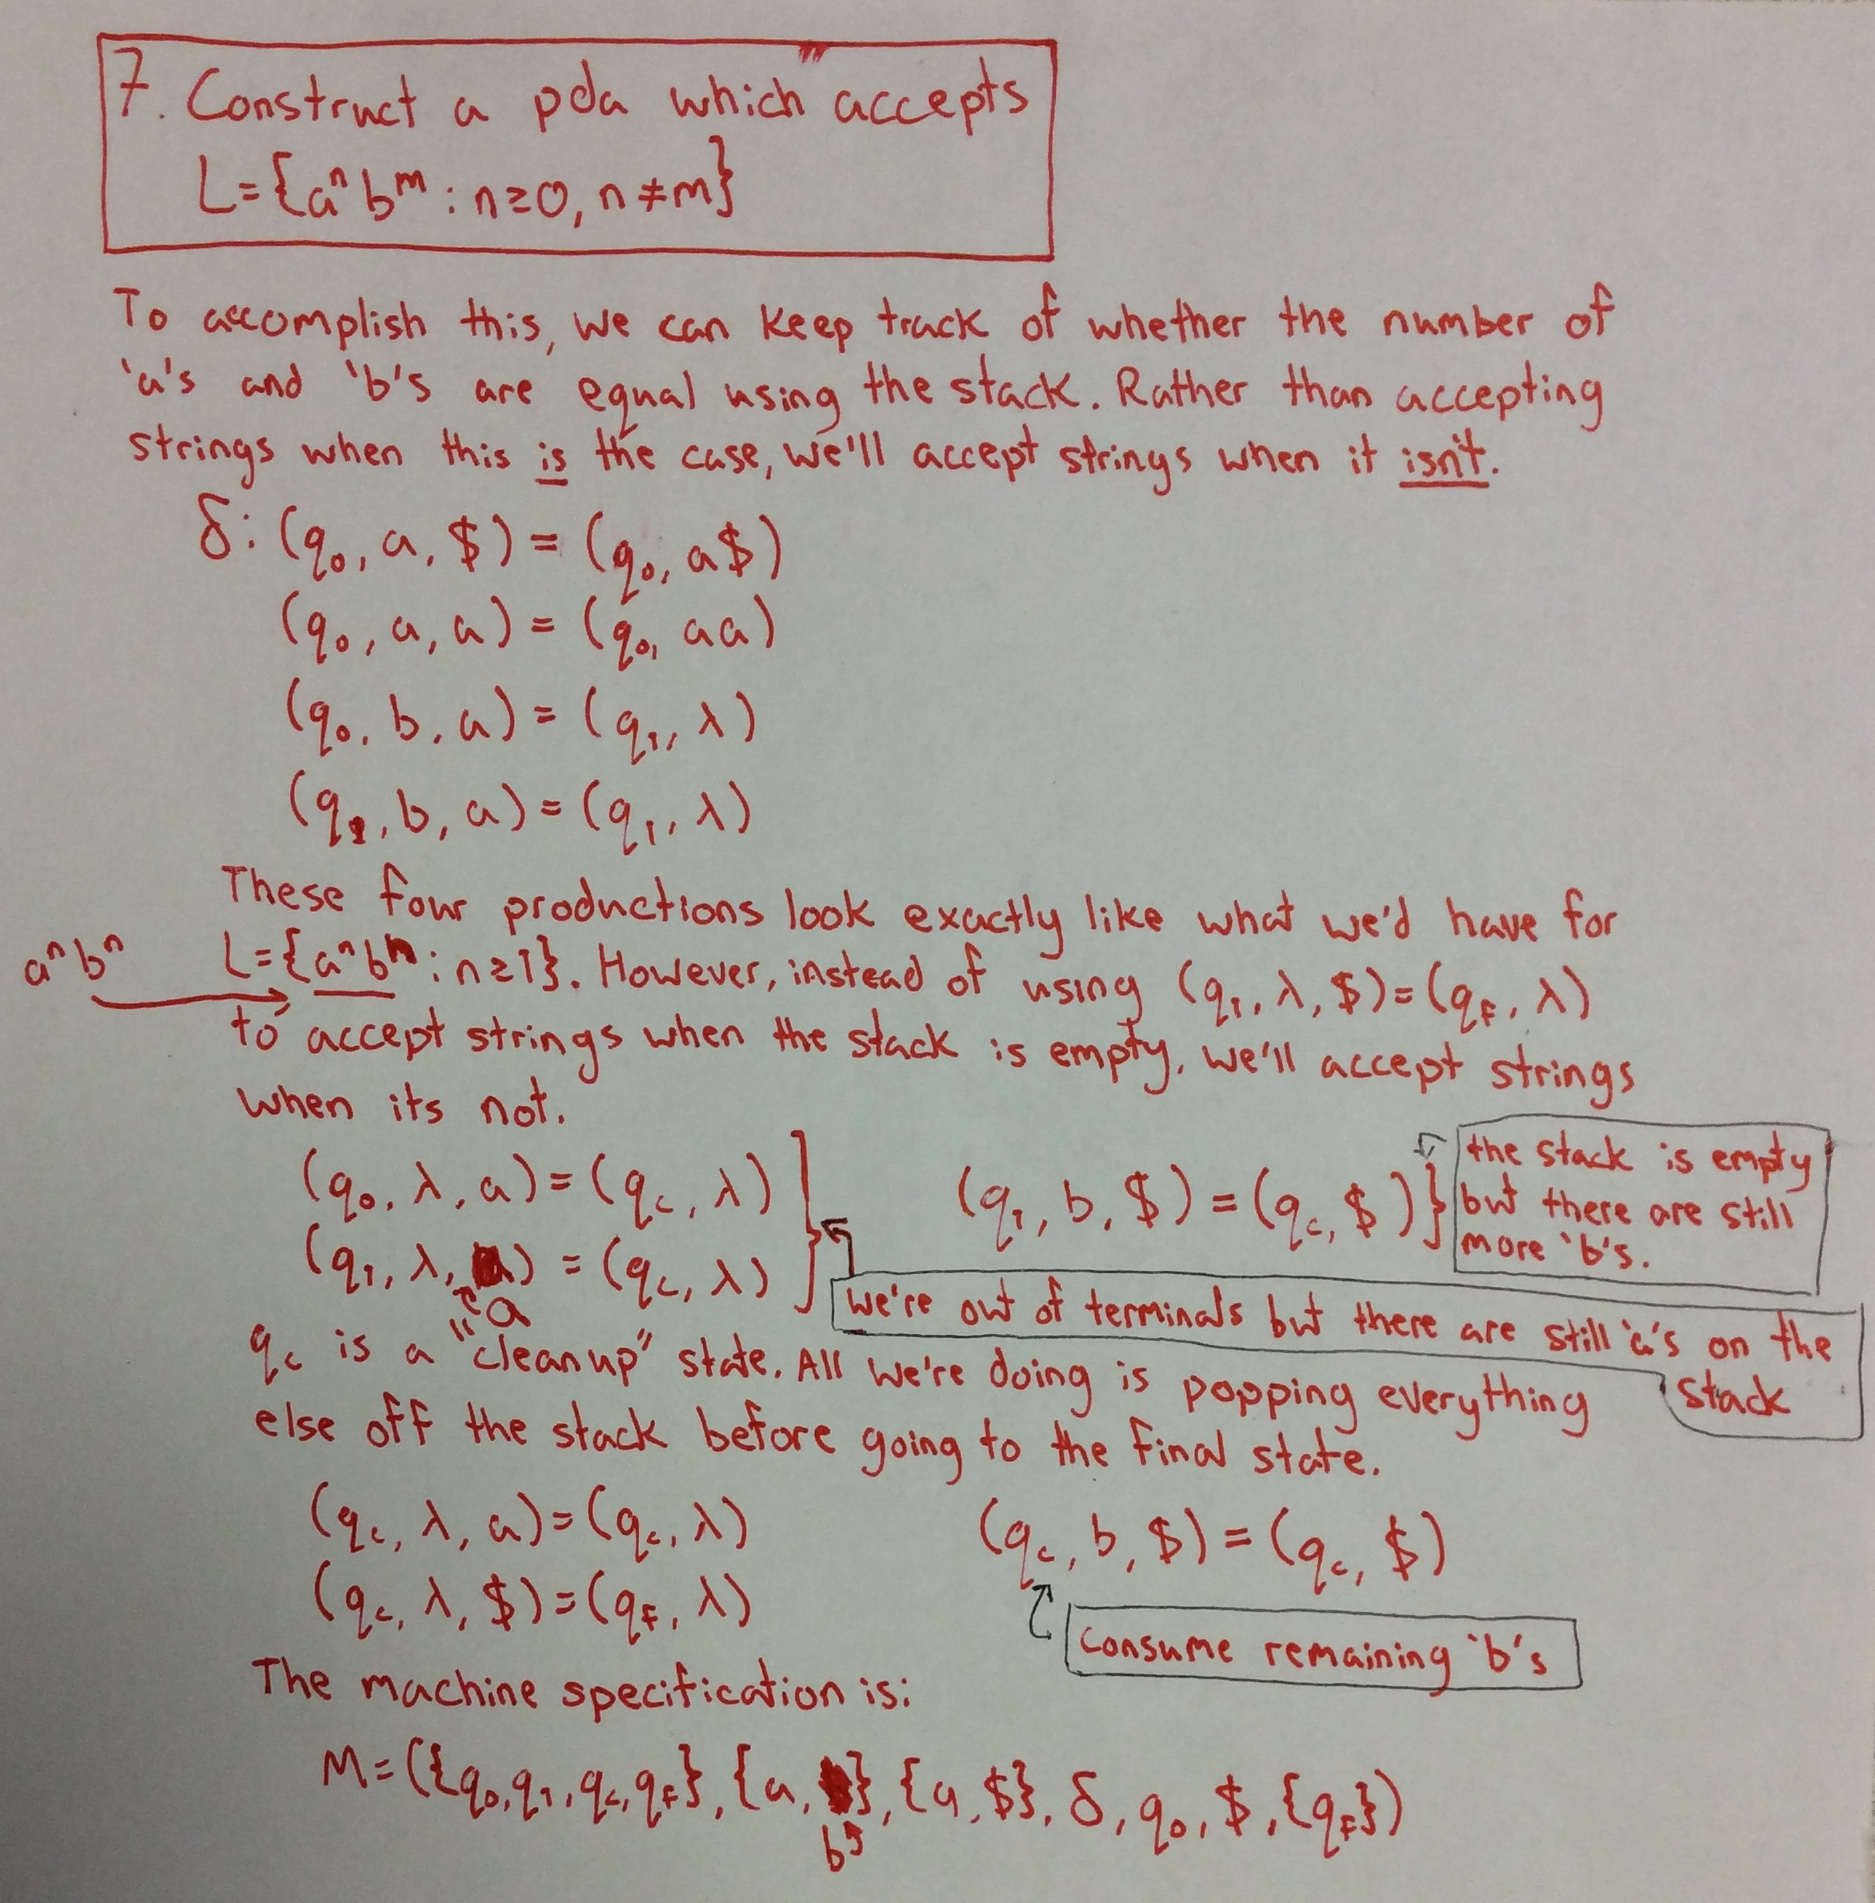 7. Construct a pda which accepts
L={aⁿbᵐ : n≥0, n≠m}
To accomplish this, we can keep track of whether the number of
'a's and 'b's are equal using the stack. Rather than accepting
strings when this is the case, we'll accept strings when it isn't.
δ: (q₀, a, $) = (q₀, a$)
(q₀, a, a) = (q₀, aa)
(q₀, b, a) = (q₁, λ)
(q₁, b, a) = (q₁, λ)
These four productions look exactly like what we'd have for
aⁿbⁿ L={aⁿbⁿ : n≥1}. However, instead of using (q₁, λ, $)=(q_F, λ)
to accept strings when the stack is empty, we'll accept strings
when its not.
(q₀, λ, a)=(q_c, λ)
(q₁, λ, a) = (q_c, λ)
"a"
we're out of terminals but there are still 'a's on the
stack
(q₁, b, $) = (q_c, $)
the stack is empty
but there are still
more 'b's.
q_c is a "cleanup" state. All we're doing is popping everything
else off the stack before going to the final state.
(q_c, λ, a)=(q_c, λ)
(q_c, λ, $)=(q_F, λ)
(q_c, b, $) = (q_c, $)
consume remaining 'b's
The machine specification is:
M=({q₀,q₁,q_c,q_F}, {a, b}, {a, $}, δ, q₀, $, {q_F})
b